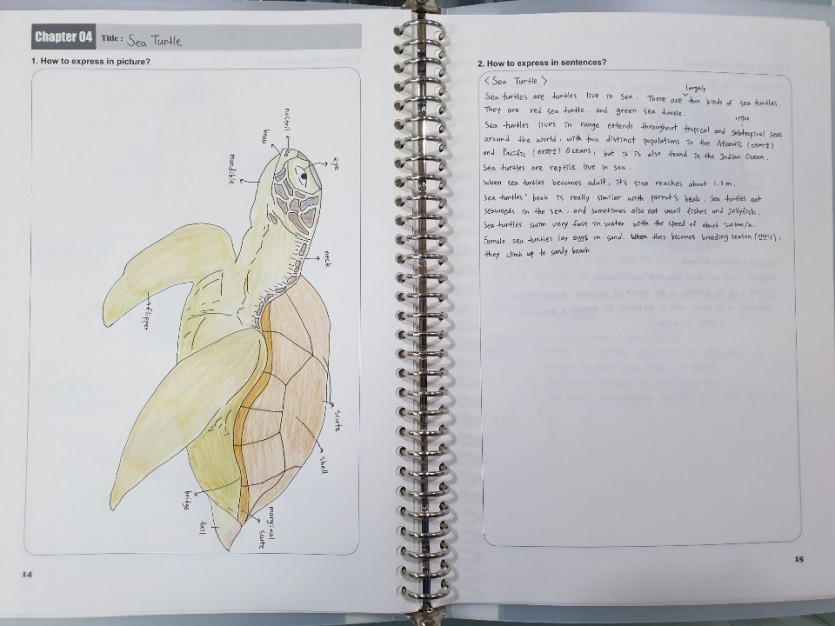 Chapter 04 Title : Sea Turtle
1. How to express in picture?
nostril
beak
eye
mandible
neck
flipper
scute
shell
marginal
scute
bridge
tail
14
2. How to express in sentences?
< Sea Turtle >
largely
Sea turtles are turtles live in sea. There are two kinds of sea turtles.
They are red sea turtle. and green sea turtle.
Sea turtles lives in range extends throughout tropical and subtropical seas
around the world, with two distinct populations in the Atlantic
and Pacific Oceans, but it is also found in the Indian Ocean.
Sea turtles are reptile live in sea.
When sea turtles becomes adult, it's size reaches about 1. m.
Sea turtles' beak is really similar with parrot's beak. Sea turtles eat
seaweeds in the sea. and sometimes also eat small fishes and jellyfish.
Sea turtles swim very fast in water with the speed of about 20km/h.
Female sea turtles lay eggs on sand. When they becomes breeding season
they climb up to sandy beach
15